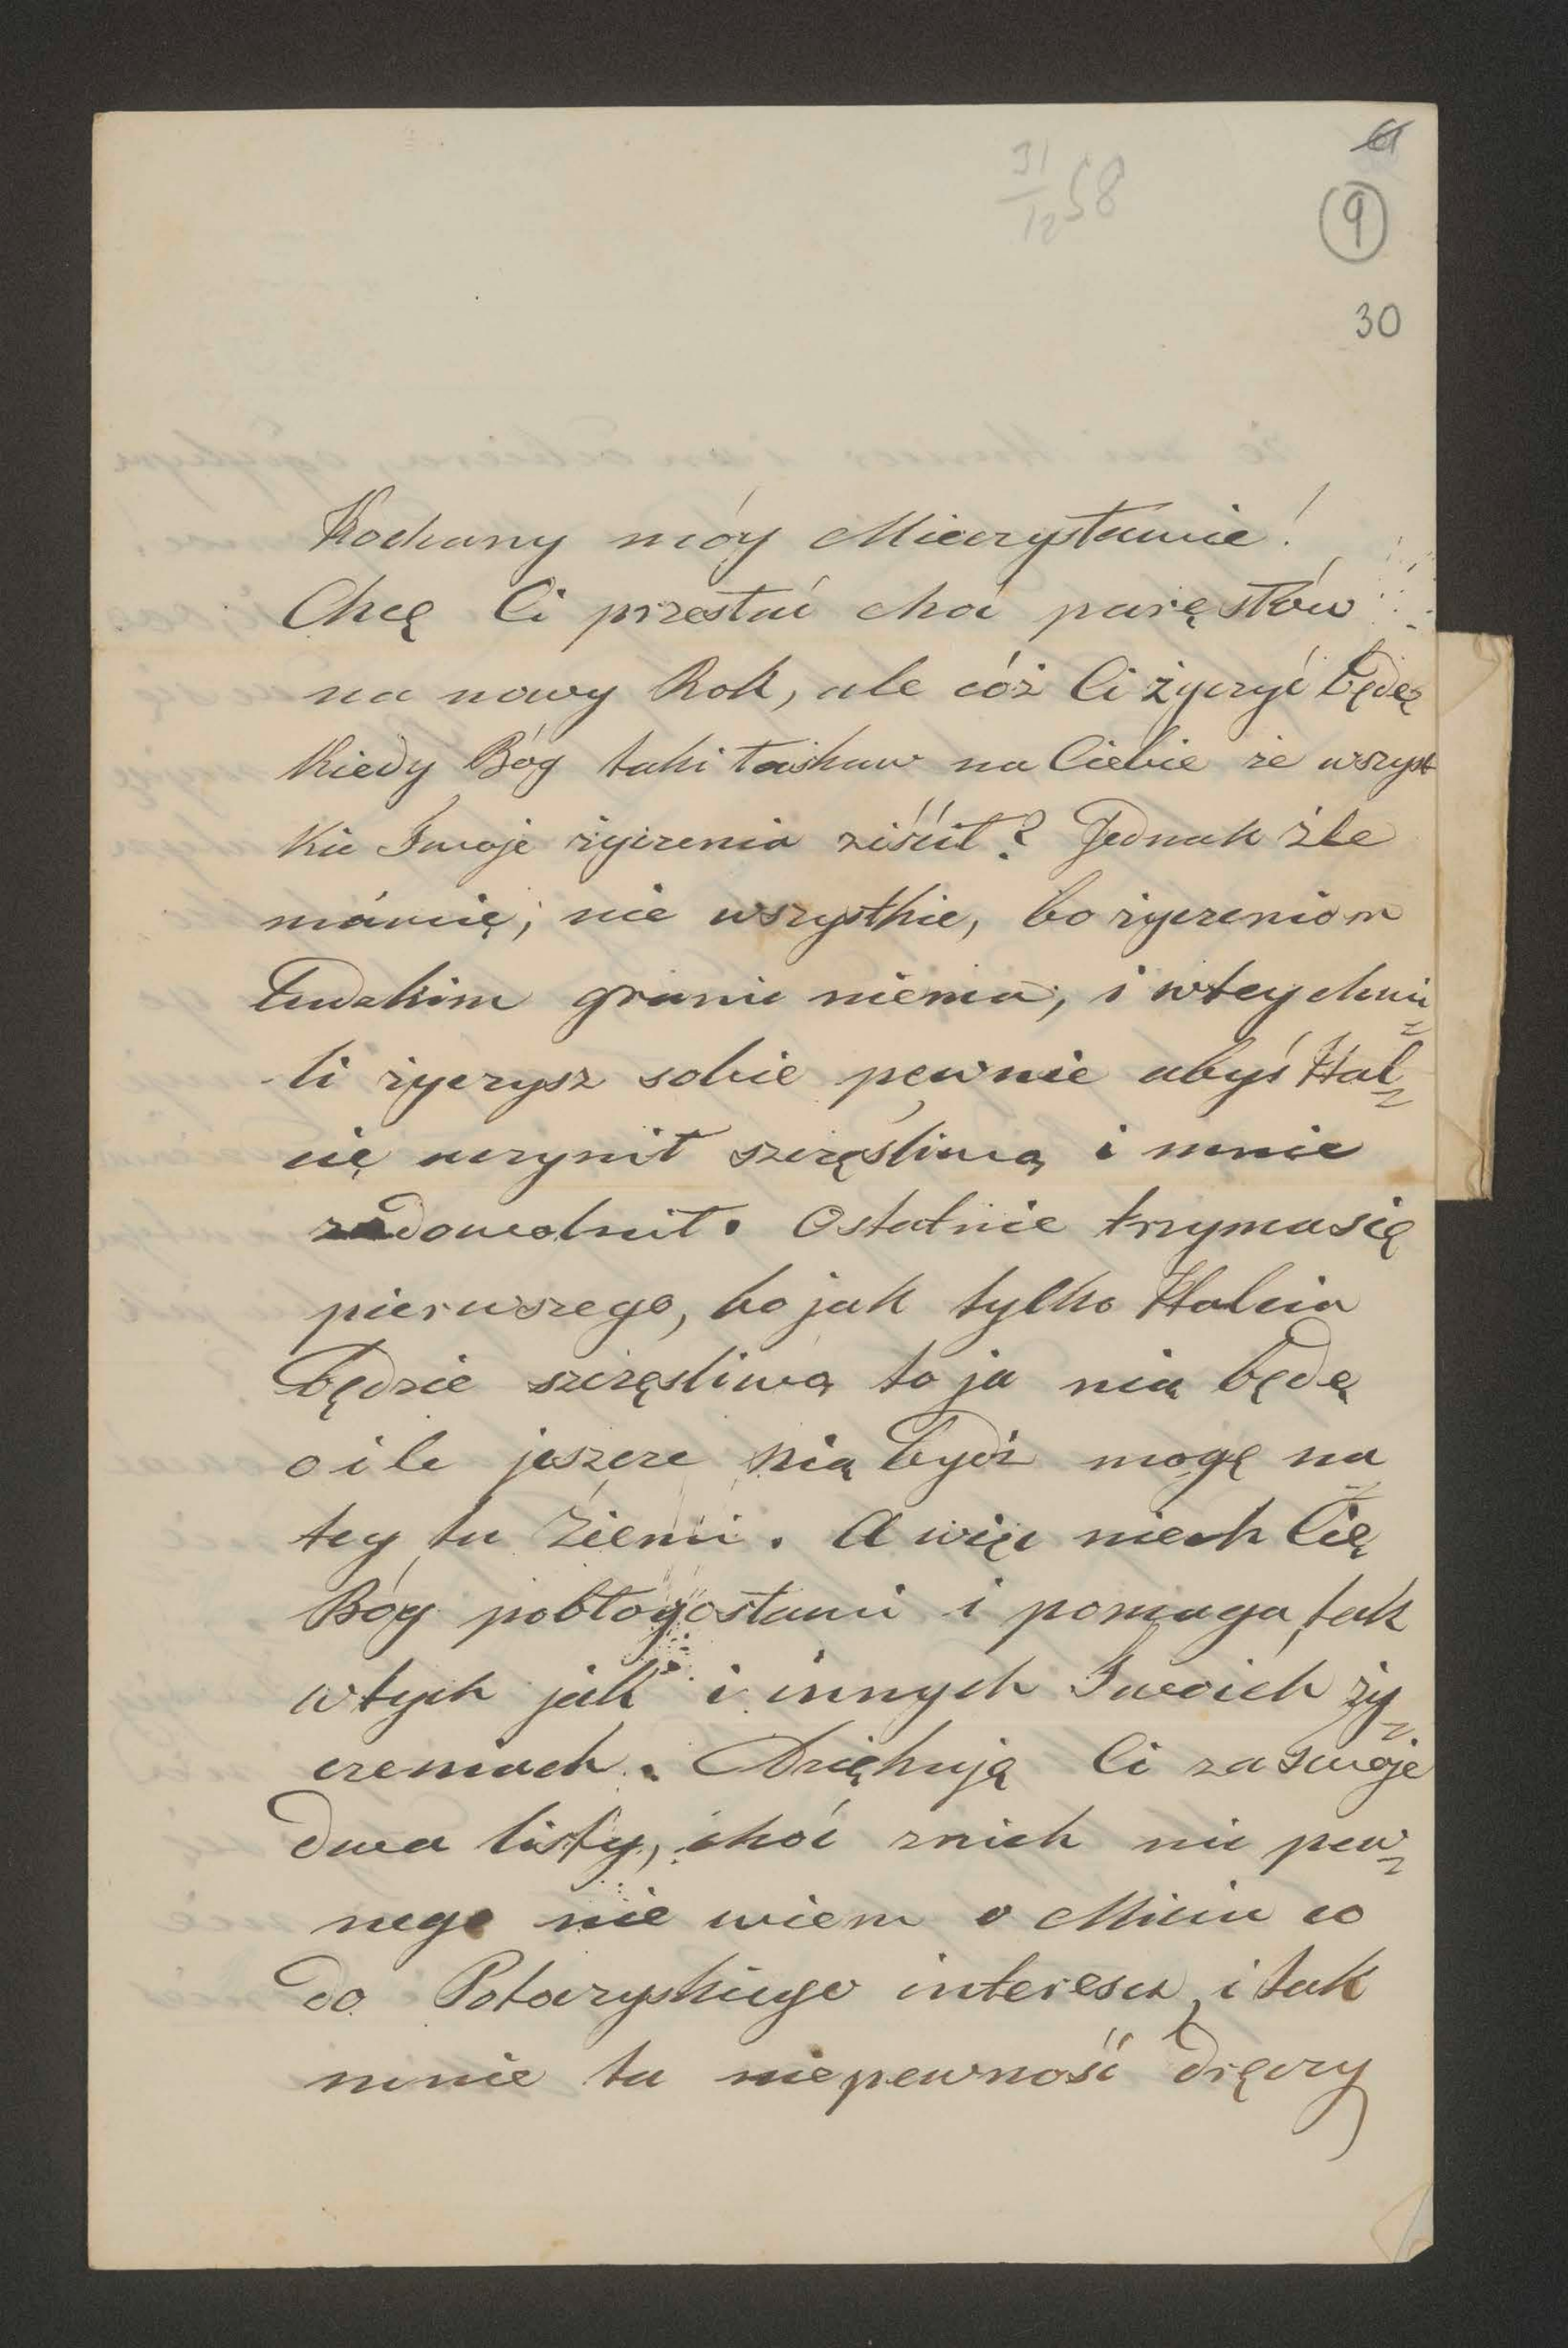 31/12 58
9
30
Kochany móy Mieczysławie!
Chcę Ci przesłać choć parę słów
na nowy Rok, ale cóż Ci życzyć będę
kiedy Bóg taki łaskaw na Ciebie że wszyst
kie Twoje życzenia ziścił? Jednak źle
mówię, nie wszystkie, bo życzeniom
ludzkim granic niema, i w tey chwi=
li życzysz sobie pewnie abyś Hal=
cię uczynił szczęśliwą i mnie
zadowolnił. Ostatnie trzyma się
pierwszego, bo jak tylko Halcia
będzie szczęśliwą to ja nią będę
o ile jeszcze nią bydź mogę na
tey tu ziemi. A więc niech Cię
Bóg pobłogosławi i pomaga, tak
w tych jak i innych Twoich ży=
czeniach. Dziękuję Ci za twoje
dwa listy, choć z nich nic pew=
nego nie wiem o Miciu co
do interesu, i tak
mnie ta niepewność dręczy